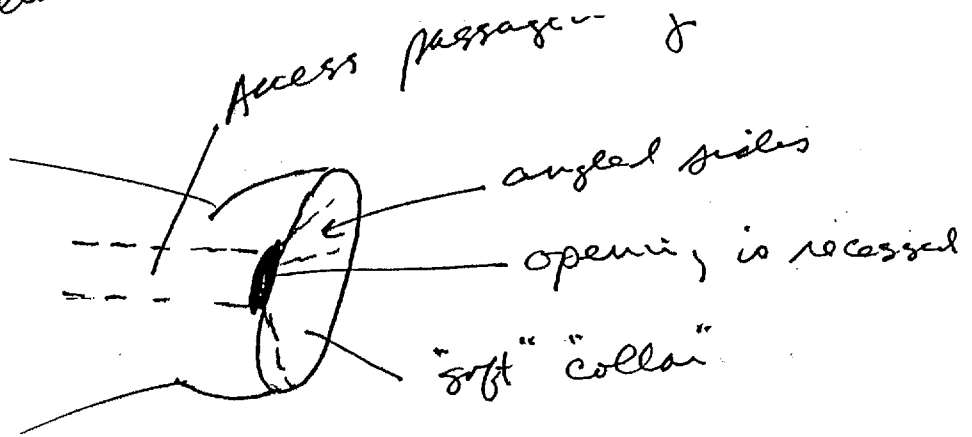 Access passage
angled sides
opening is recessed
"soft" "collar"